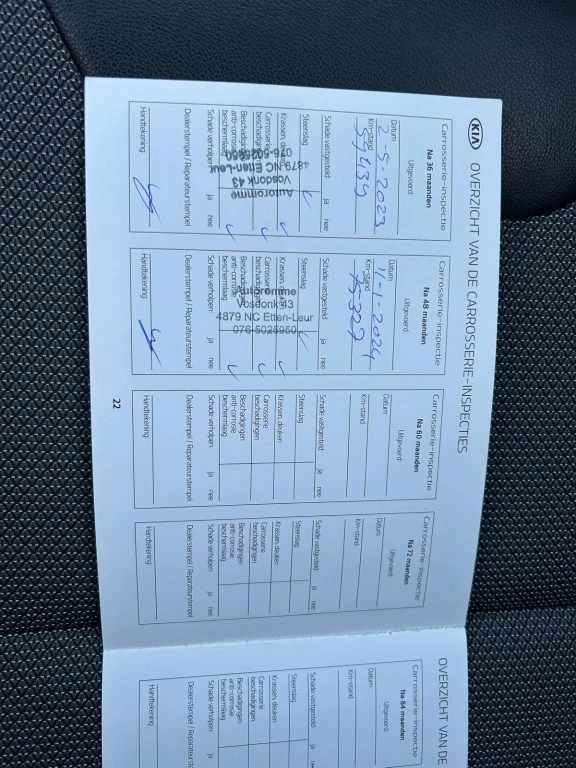 KIA OVERZICHT VAN DE CARROSSERIE-INSPECTIES
Carrosserie-inspectie
Na 36 maanden
Uitgevoerd:
Datum
2-5-2023
Km-stand
Schade vastgesteld ja nee
Steenslag
Krassen, deuken
Carrosserie
beschadigingen
Beschadigingen
anti-corrosie
beschermlaag
Schade verholpen ja nee
Dealerstempel / Reparateurstempel
Autoromme
Vosdonk 43
4879 NC Etten-Leur
076-5025950
Handtekening
Carrosserie-inspectie
Na 48 maanden
Uitgevoerd:
Datum
11-1-2024
Km-stand
75327
Schade vastgesteld ja nee
Steenslag
Krassen, deuken
Carrosserie
beschadigingen
Beschadigingen
anti-corrosie
beschermlaag
Schade verholpen ja nee
Dealerstempel / Reparateurstempel
Autoromme
Vosdonk 43
4879 NC Etten-Leur
076-5025950
Handtekening
Carrosserie-inspectie
Na 60 maanden
Uitgevoerd:
Datum
Km-stand
Schade vastgesteld ja nee
Steenslag
Krassen, deuken
Carrosserie
beschadigingen
Beschadigingen
anti-corrosie
beschermlaag
Schade verholpen ja nee
Dealerstempel / Reparateurstempel
Handtekening
Carrosserie-inspectie
Na 72 maanden
Uitgevoerd:
Datum
Km-stand
Schade vastgesteld ja nee
Steenslag
Krassen, deuken
Carrosserie
beschadigingen
Beschadigingen
anti-corrosie
beschermlaag
Schade verholpen ja nee
Dealerstempel / Reparateurstempel
Handtekening
22
OVERZICHT VAN DE
Carrosserie-inspectie
Na 84 maanden
Uitgevoerd:
Datum
Km-stand
Schade vastgesteld ja
Steenslag
Krassen, deuken
Carrosserie
beschadigingen
Beschadigingen
anti-corrosie
beschermlaag
Schade verholpen ja
Dealerstempel / Reparateurstempel
Handtekening